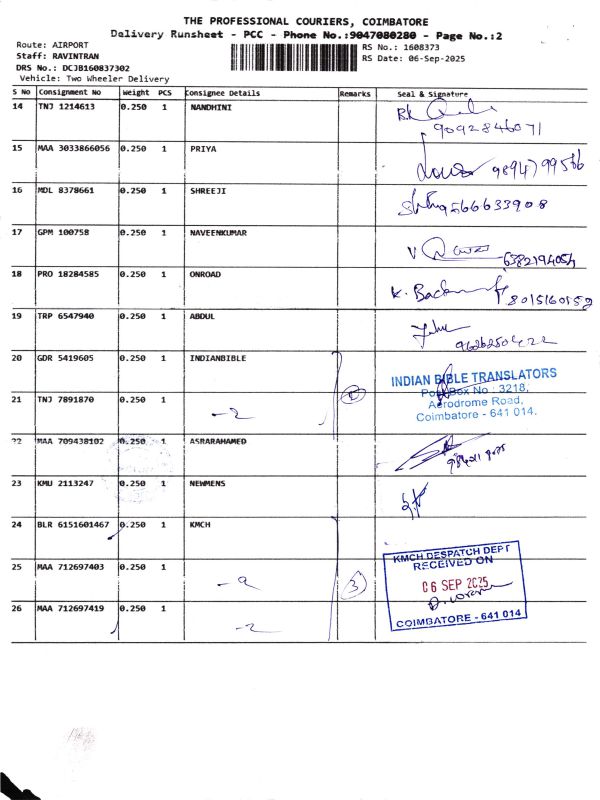 THE PROFESSIONAL COURIERS, COIMBATORE
Delivery Runsheet - PCC - Phone No.:9047080280 - Page No.:2
Route: AIRPORT
Staff: RAVINTRAN
DRS No.: DCJB160837302
Vehicle: Two Wheeler Delivery
RS No.: 1608373
RS Date: 06-Sep-2025
S No Consignment No Weight PCS Consignee Details Remarks Seal & Signature
14 TNJ 1214613 0.250 1 NANDHINI
9092846071
15 MAA 3033866056 0.250 1 PRIYA
9894799566
16 MDL 8378661 0.250 1 SHREEJI
9566633908
17 GPM 100758 0.250 1 NAVEENKUMAR
6382194054
18 PRO 18284585 0.250 1 ONROAD
8015160159
19 TRP 6547940 0.250 1 ABDUL
20 GDR 5419605 0.250 1 INDIANBIBLE
INDIAN BIBLE TRANSLATORS
Post Box No : 3218,
21 TNJ 7891870 0.250 1
Aerodrome Road,
Coimbatore - 641 014.
-2
2
22 MAA 709438102 0.250 1 ASRARAHAMED
23 KMU 2113247 0.250 1 NEWMENS
24 BLR 6151601467 0.250 1 KMCH
KMCH DESPATCH DEPT
RECEIVED ON
25 MAA 712697403 0.250 1
06 SEP 2025
3
26 MAA 712697419 0.250 1
COIMBATORE - 641 014
-2